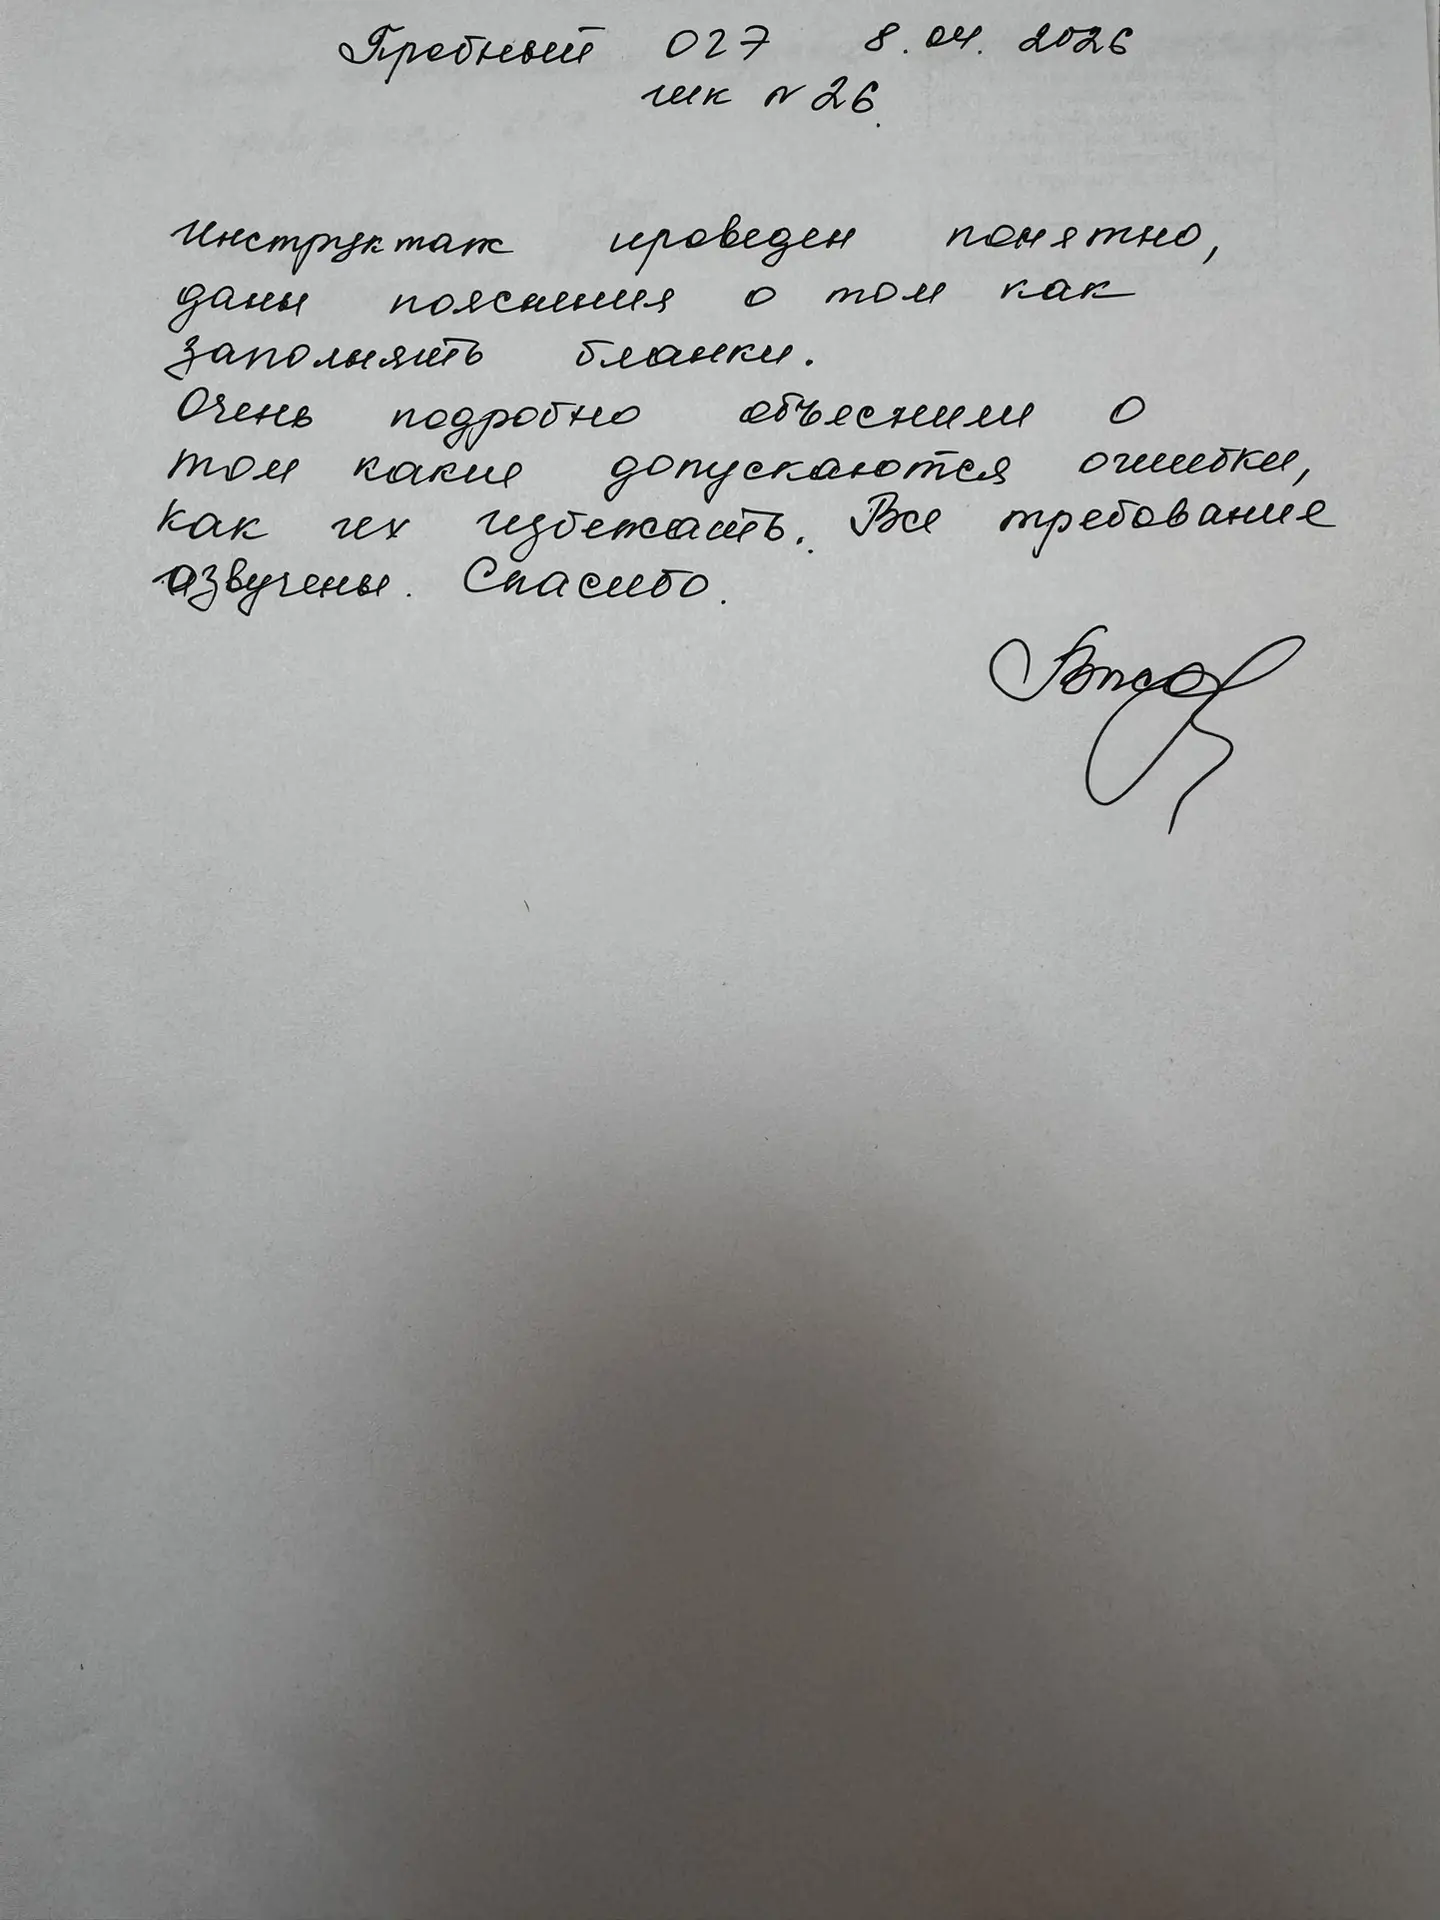 Пробный ОГЭ 8.04.2026
шк № 26.
Инструктаж проведен понятно,
даны пояснения о том как
заполнять бланки.
Очень подробно объяснили о
том какие допускаются ошибки,
как их избежать. Все требование
озвучены. Спасибо.